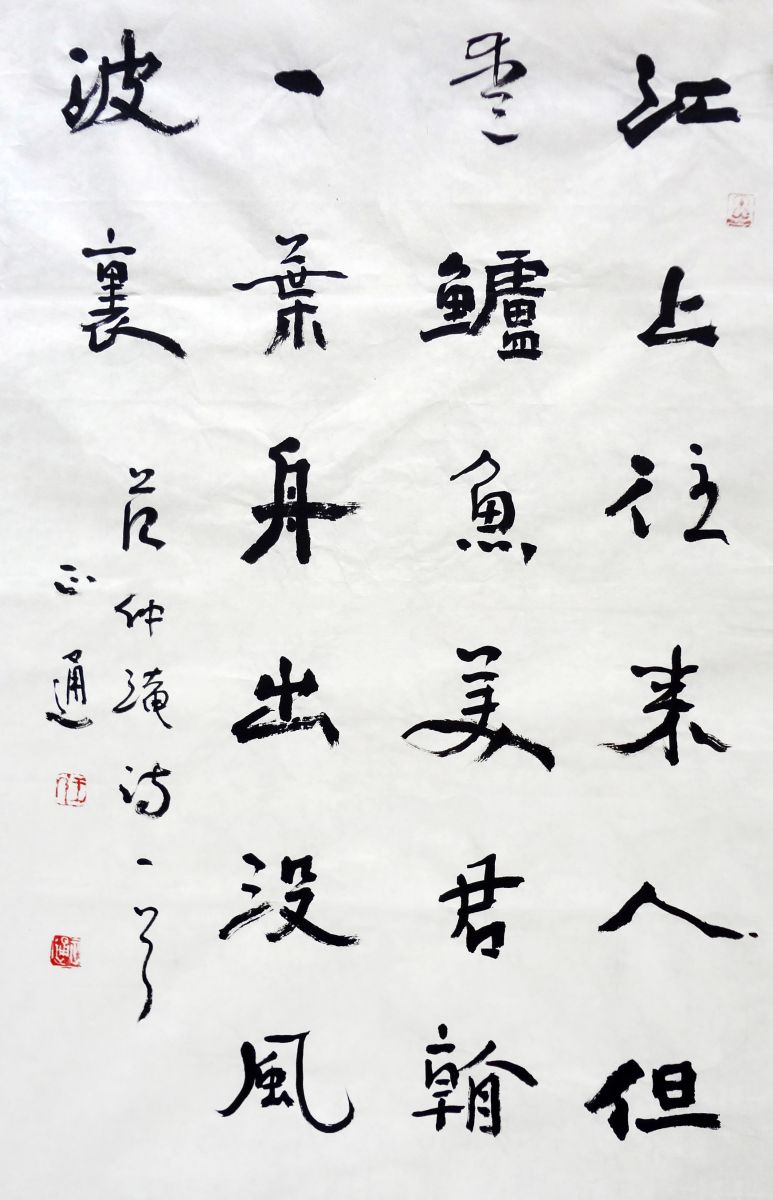 江上往来人但
爱鱸魚美君看
一葉舟出没風
波裏
范仲淹诗一首
正通